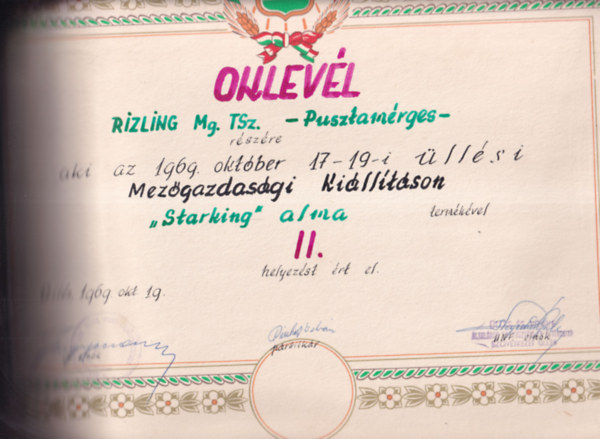 OKLEVÉL
RIZLING Mg. TSz. -Pusztamérges-
részére
aki az 1969. október 17-19-i üllési
Mezőgazdasági Kiállításon
„Starking" alma termékével
II.
helyezést ért el.
1969. okt 19.
párttitkár
elnök